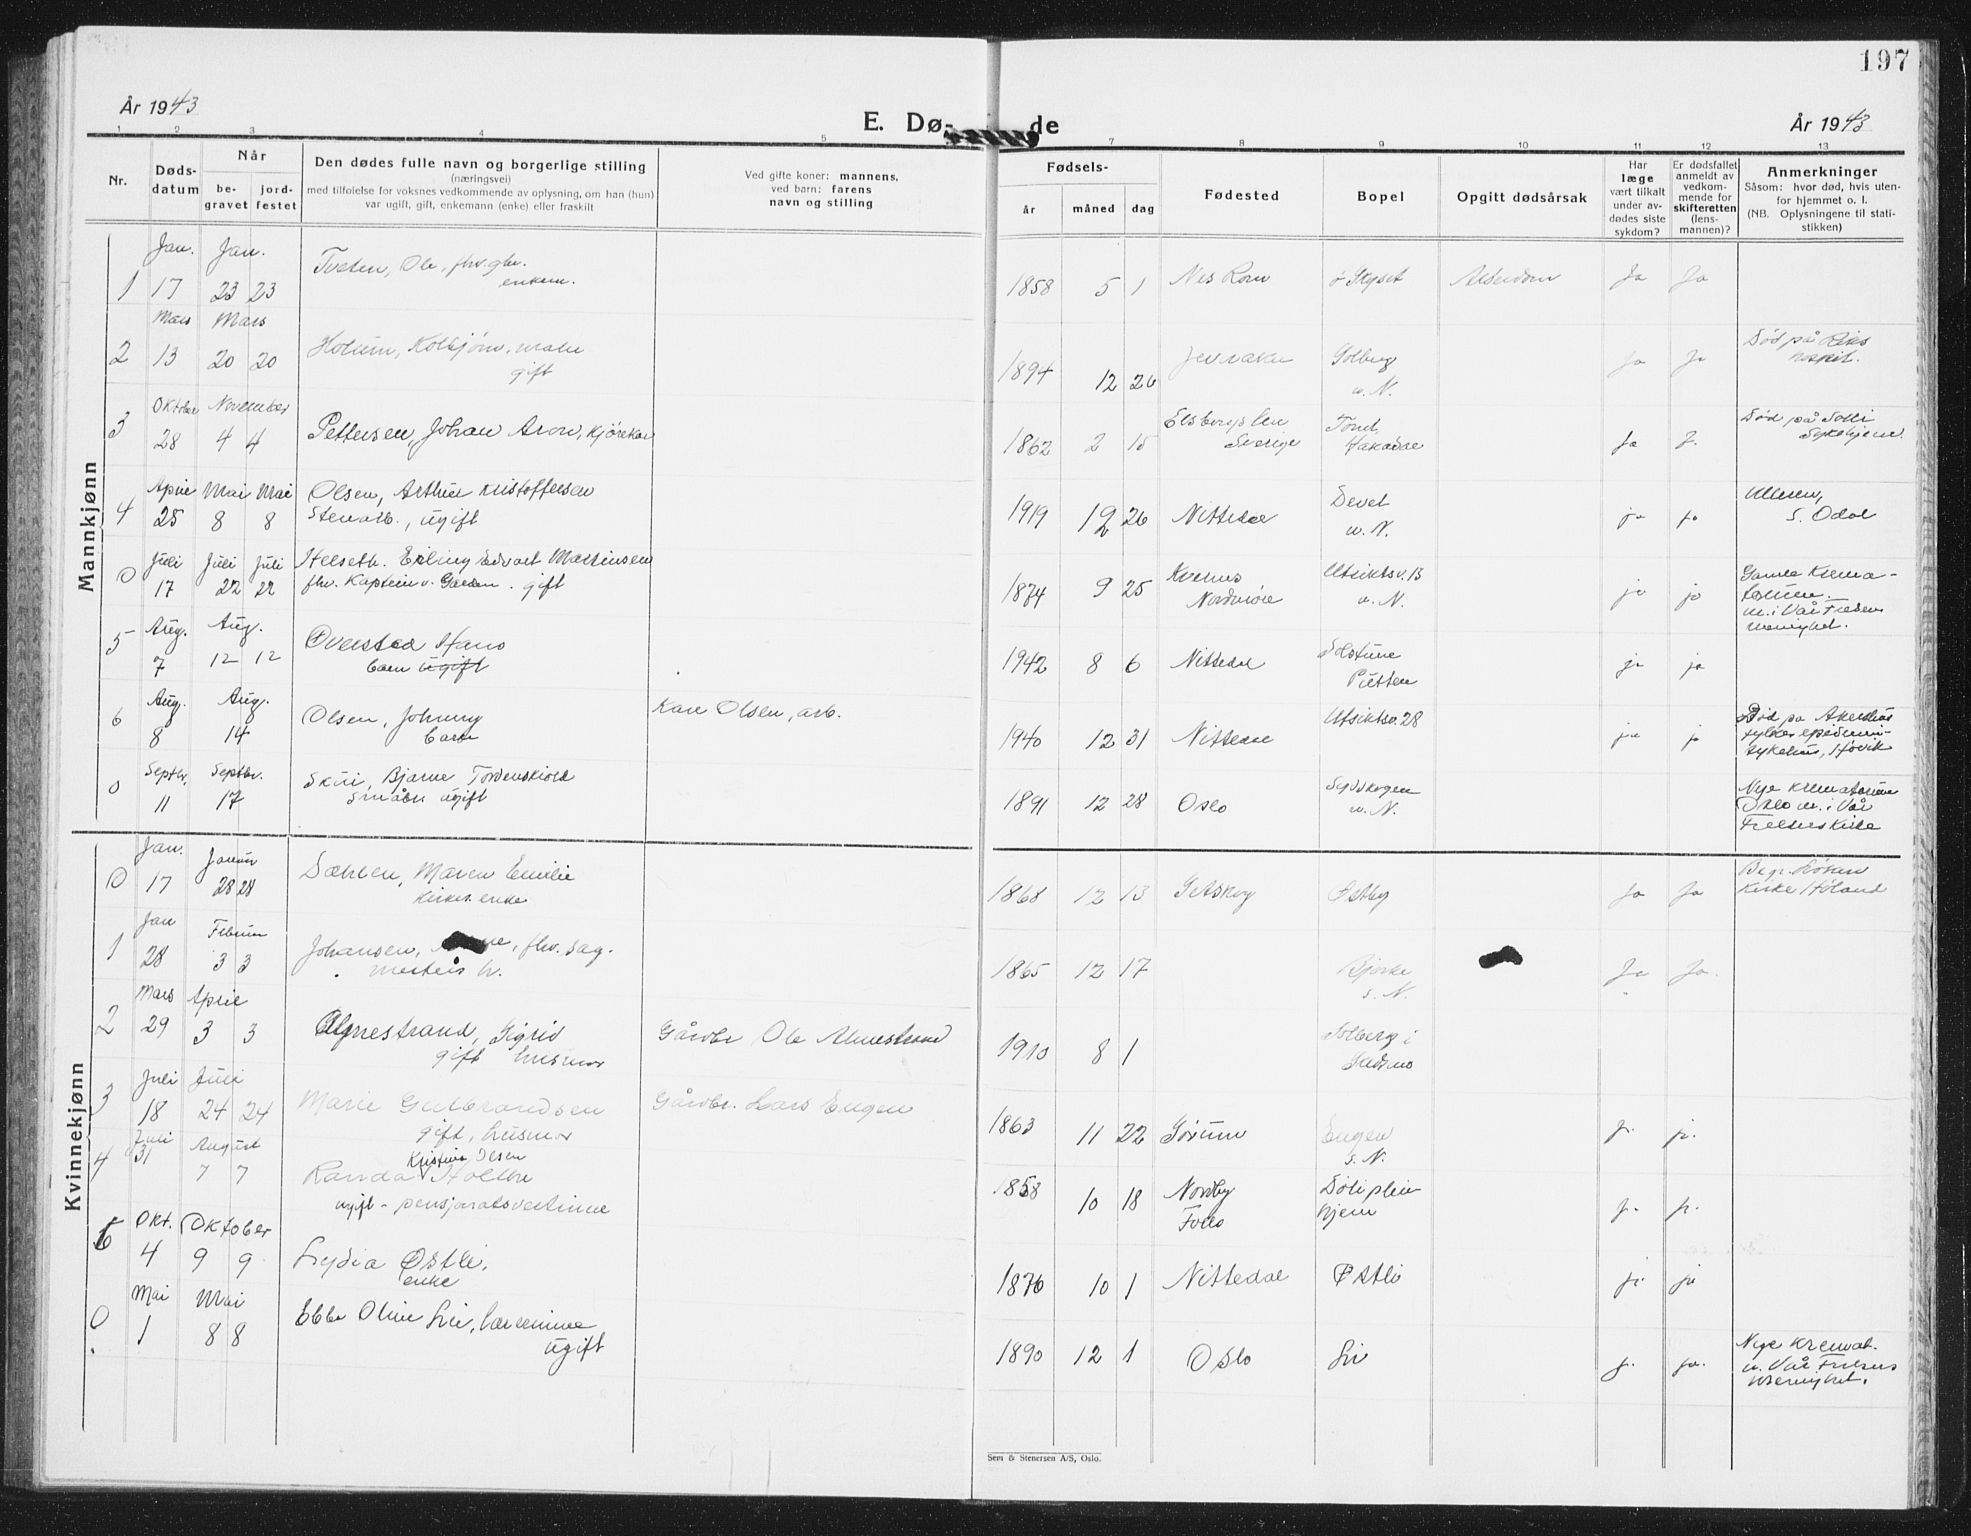 197
År 1943
E. Dø- de
År 1943
1 2 3 4 5 7 8 9 10 11 12 13
Nr.
Døds-
datum
Når
be-
gravet
jord-
festet
Den dødes fulle navn og borgerlige stilling
(næringsvei)
med tilføielse for voksnes vedkommende av oplysning, om han (hun)
var ugift, gift, enkemann (enke) eller fraskilt
Ved gifte koner: mannens,
ved barn: farens
navn og stilling
Fødsels-
år måned dag
Fødested
Bopel
Opgitt dødsårsak
Har
læge
vært tilkalt
under av-
dødes siste
sykdom?
Er dødsfallet
anmeldt av
vedkom-
mende for
skifteretten
(lens-
mannen)?
Anmerkninger
Såsom: hvor død, hvis uten-
for hjemmet o. l.
(NB. Oplysningene til stati-
stikken)
Mannkjønn
Jan. Jan.
1 17 23 23 Tveten, Ole, fhv. gbr.
enkem.
1858 5 1 Nes Rom. ø Skyset Alderdom Ja Ja
Mars Mars
2 13 20 20 Holum, Kolbjørn, maler
gift
1894 12 26 Jevnaker Solberg
u. N.
Ja Ja
Død på Riks
hospit.
Oktober November
3 28 4 4 Pettersen, Johan Aron, kjørekar
1862 2 15 Elsborgs len
Sverige
Tomt,
Hakadal
Ja J.
Død på Solli
Sykehjem.
April Mai Mai
4 25 8 8 Olsen, Arthur Kristoffersen
Stenarb., ugift
1919 12 26 Nittedal
u. N.
ja ja
Ullern,
S. Odal
Juli Juli Juli
0 17 22 22 Helseth. Erling Edvart Martinsen
fhv. Kaptein v. Garden. gift
1874 9 25 Kvernes
Nordmøre
Utsiktsv. 13
u. N.
ja ja
Gamle Krema-
torium.
m. i Vår Frelsers
menighet.
Aug. Aug.
5 7 12 12 Øverstad Hans
barn ugift
1942 8 6 Nittedal Solstune
Putten
ja ja
Aug. Aug.
6 8 14 Olsen, Johnny
barn
Kåre Olsen, arb.
1940 12 31 Nittedal Utsiktsv. 28
ja ja
Død på Akershus
fylkes epidemi-
sykehus, Høvik
Septbr. Septbr.
0 11 17 Skui, Bjarne Tordenskiold
småbr. ugift
1891 12 28 Oslo Sydskogen
u. N.
Nye Krematorium
Oslo m. i Vår
Frelsers Kirke
Kvinnekjønn
Jan. Januar
0 17 28 28 Dæhlen, Maren Emilie
enke
1868 12 13 Setskog Østby Ja Ja
Begr. Løken
Kirke Høland
Jan Februar
1 28 3 3 Johansen, fhv. sag.
mesters h.
1865 12 17 Bjerke
s. N.
Ja Ja.
Mars April
2 29 3 3 Almestrand, Sigrid
gift husmor
Gårdbr Ole Almestrand
1910 8 1 Solberg i
Juli Juli
3 18 24 24 Marie Gulbrandsen
gift, husmor
Gårdbr. Lars Engen
1863 11 22 Sørum Engen
s. N.
ja. ja.
Juli August
4 31 7 7 Kristine Olsen
Randa Holthe
ugift - pensjonatsvertinne
1858 10 18 Nordby
Follo
Døli pleie
hjem
ja. ja.
Okt. Oktober
5 4 9 9 Lydia Østli.
enke
1876 10 1 Nittedal Østli ja ja
Mai Mai
0 1 8 8 Ebba Oline Lie, lærerinne
ugift
1890 12 1 Oslo Li j. ja.
Nye Kremat.
m. Vår Frelsers
menighet.
Sem & Stenersen A/S, Oslo.